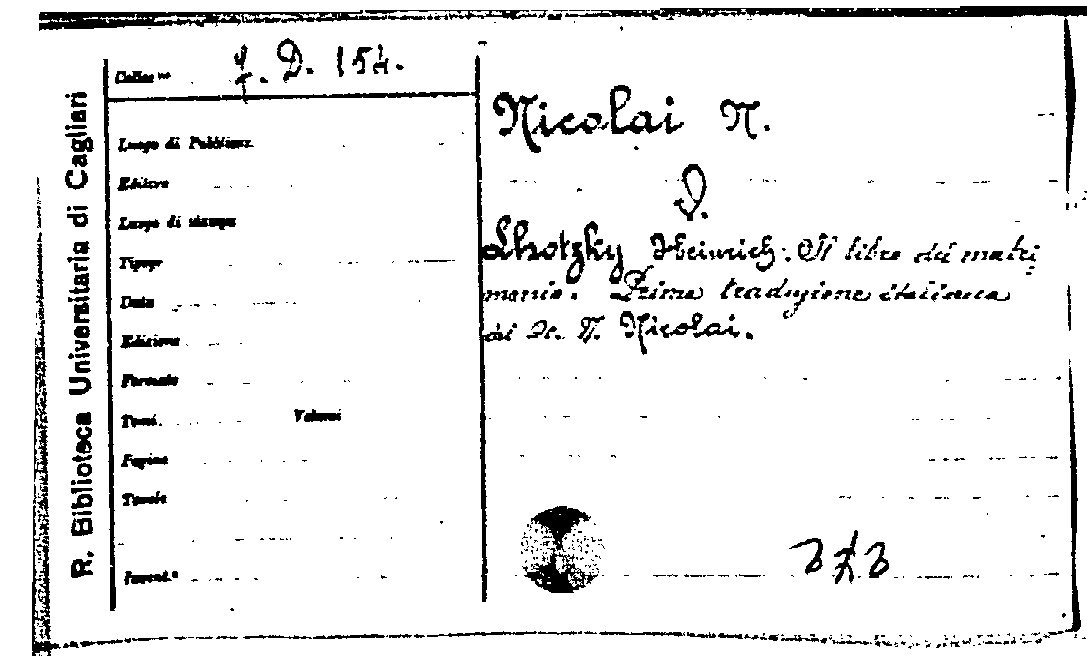 R. Biblioteca Universitaria di Cagliari
Collocne D. 154.
Luogo di Pubblicaz.
Editore
Luogo di stampa
Tipogr
Data
Edizione
Formato
Tomi. Volumi
Pagine
Tavole
Invent.o
Nicolai N.
V.
Lhotzky Heinrich. Il libro del matri
monio. Prima traduzione italiana
di N. Nicolai.